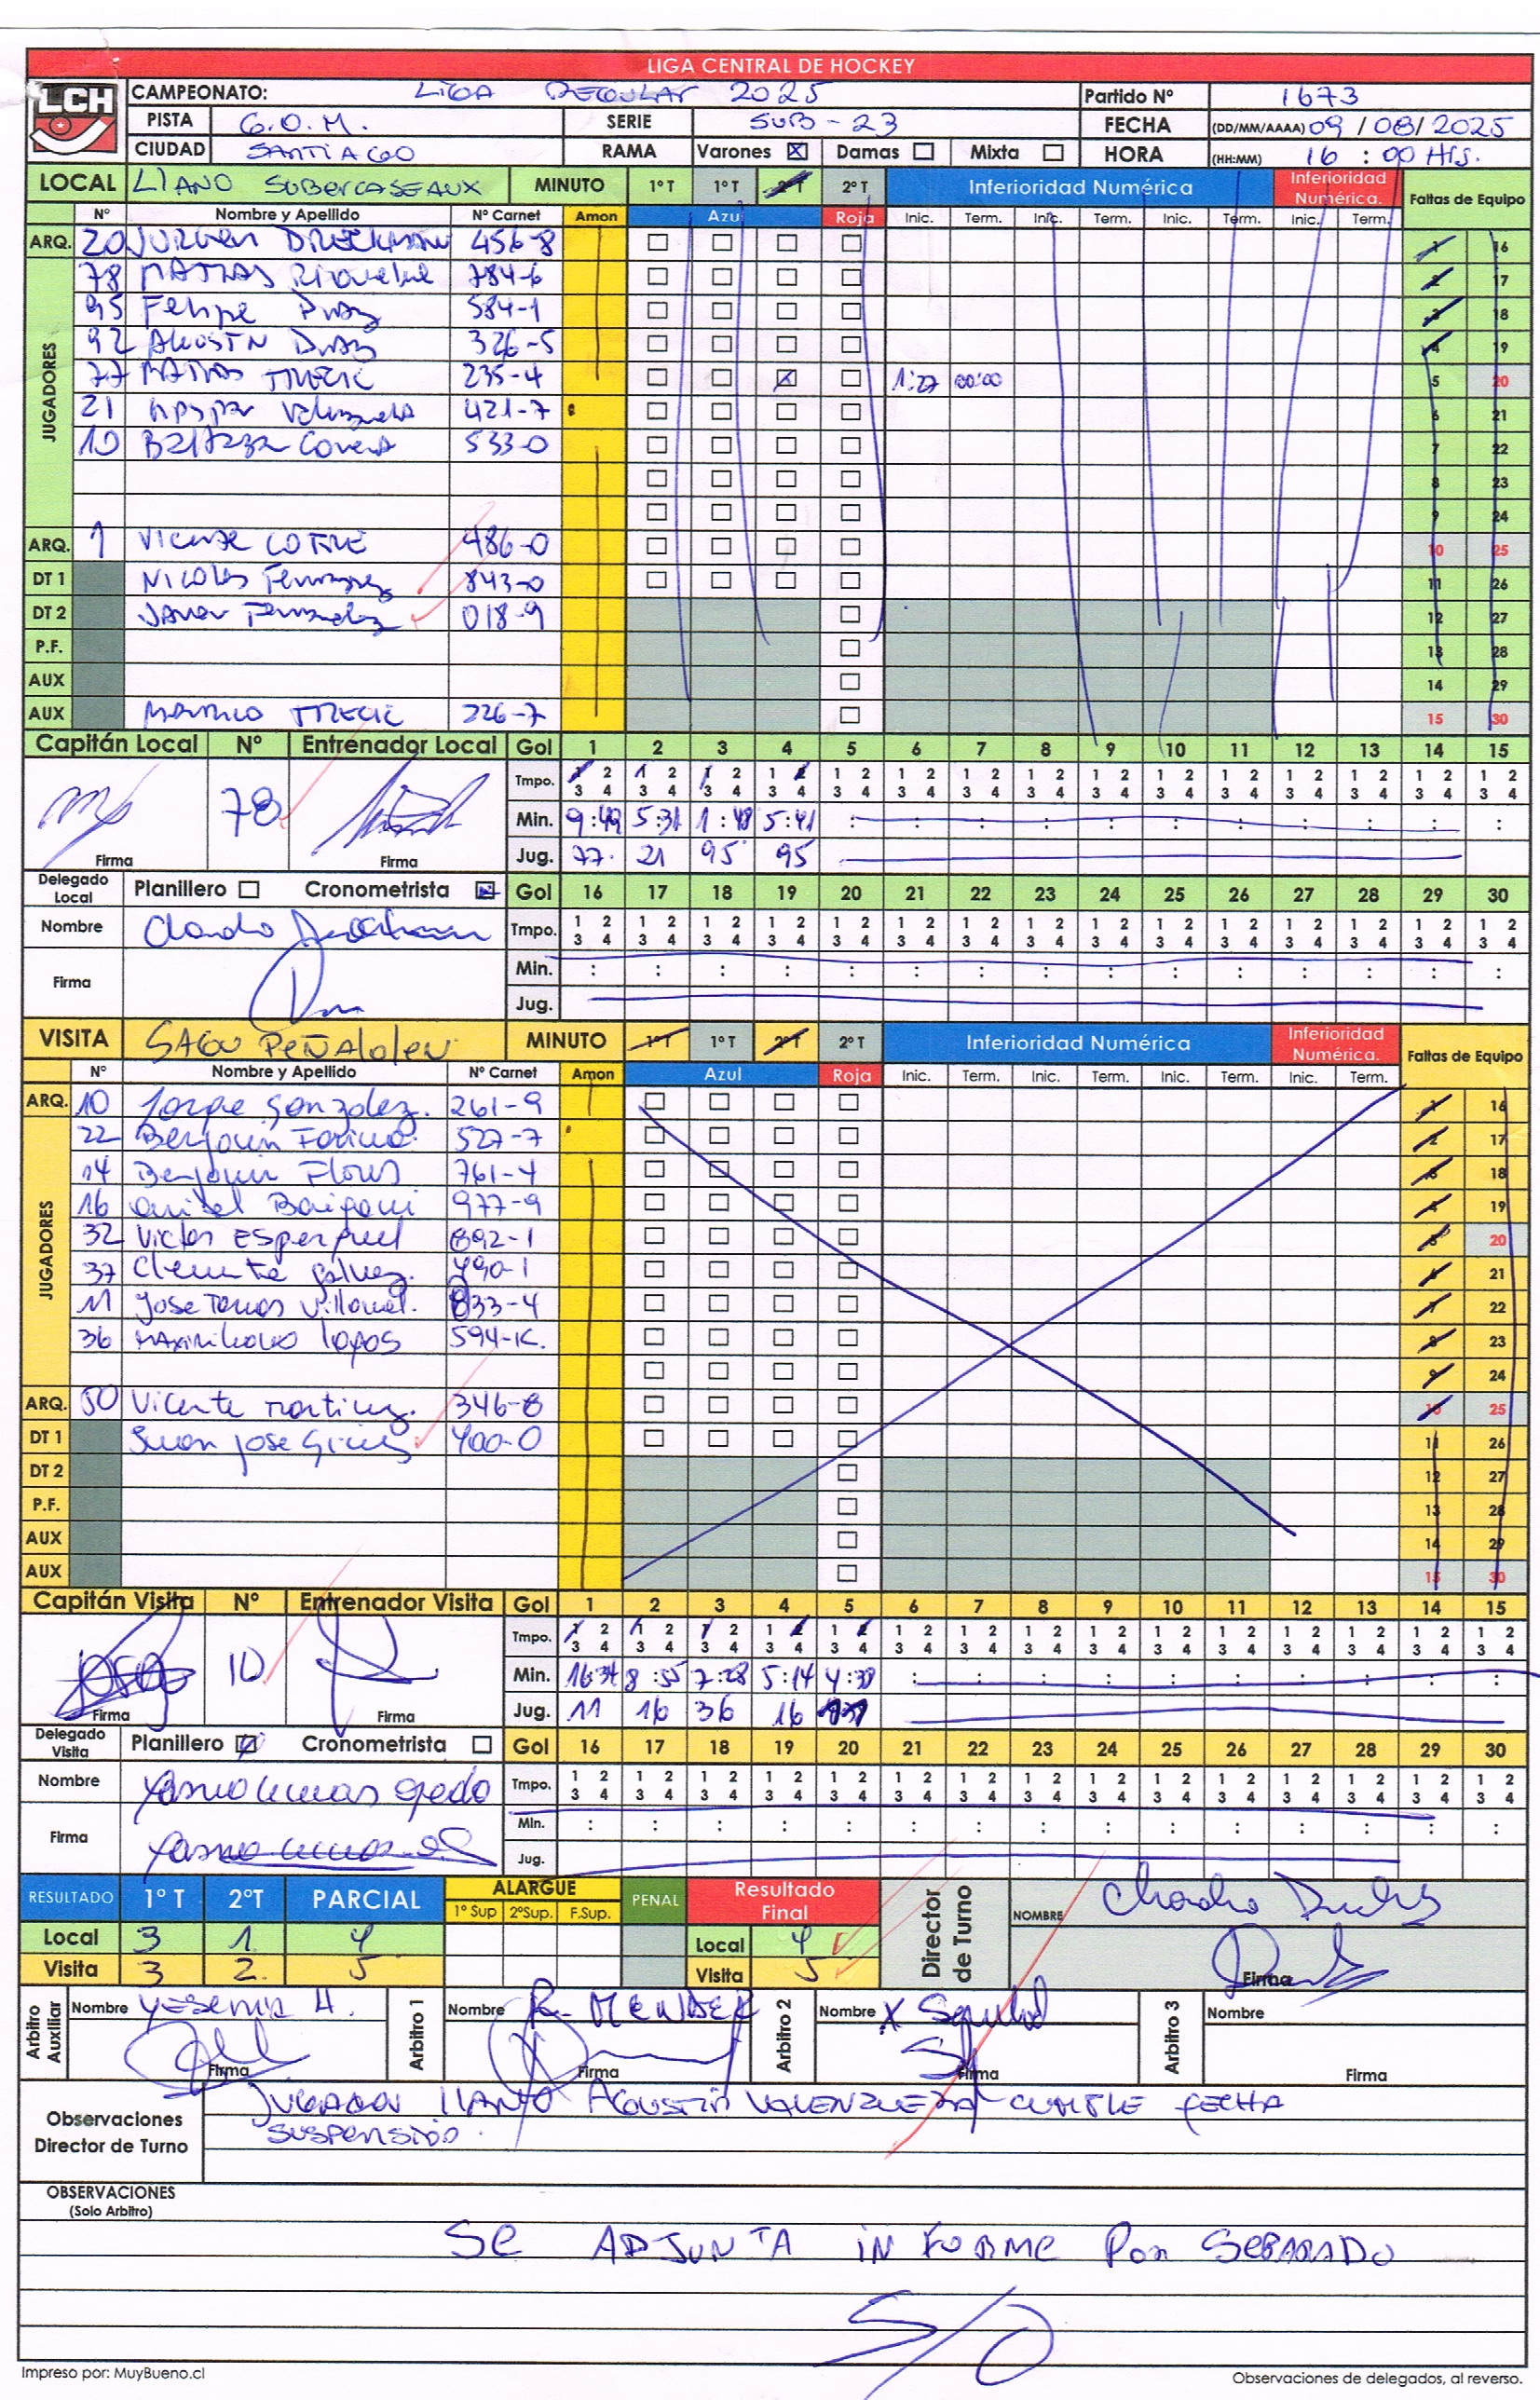 LIGA CENTRAL DE HOCKEY
LCH
CAMPEONATO: LIGA REGULAR 2025 Partido Nº 1673
PISTA G.O.M. SERIE SUB-23 FECHA (DD/MM/AAAA) 09/08/2025
CIUDAD SANTIAGO RAMA Varones Damas Mixta HORA (HH:MM) 16:00 Hrs.
LOCAL LLANO SUBERCASEAUX MINUTO 1º T 1º T 2º T 2º T Inferioridad Numérica Inferioridad Numérica. Faltas de Equipo
Nº Nombre y Apellido Nº Carnet Amon Azul Roja Inic. Term. Inic. Term. Inic. Term. Inic. Term.
ARQ. 20 JURGEN 456-8 1 16
JUGADORES
78 MATIAS Riquelme 784-6 2 17
95 Felipe Diaz 584-1 3 18
92 AGUSTN Diaz 326-5 4 19
77 MATIAS TIRECIC 235-4 1:27 00:00 5 20
21 Gaspar Valenzuela 421-7 6 21
10 533-0 7 22
8 23
9 24
ARQ. 1 Vicente COTRE 486-0 10 25
DT 1 NICOLAS Fernandez 843-0 11 26
DT 2 Javier Fernandez 018-9 12 27
P.F. 13 28
AUX 14 29
AUX TIRECIC 226-7 15 30
Capitán Local Nº Entrenador Local Gol 1 2 3 4 5 6 7 8 9 10 11 12 13 14 15
Tmpo. 1 2 3 4 1 2 3 4 1 2 3 4 1 2 3 4 1 2 3 4 1 2 3 4 1 2 3 4 1 2 3 4 1 2 3 4 1 2 3 4 1 2 3 4 1 2 3 4 1 2 3 4 1 2 3 4 1 2 3 4
78 Min. 9:49 5:31 1:48 5:41
Firma Firma Jug. 77 21 95 95
Delegado Local Planillero Cronometrista Gol 16 17 18 19 20 21 22 23 24 25 26 27 28 29 30
Nombre Claudio Tmpo. 1 2 3 4 1 2 3 4 1 2 3 4 1 2 3 4 1 2 3 4 1 2 3 4 1 2 3 4 1 2 3 4 1 2 3 4 1 2 3 4 1 2 3 4 1 2 3 4 1 2 3 4 1 2 3 4 1 2 3 4
Firma Min.
Jug.
VISITA SAGU PEÑALOLEN MINUTO 1º T 1º T 2º T 2º T Inferioridad Numérica Inferioridad Numérica. Faltas de Equipo
Nº Nombre y Apellido Nº Carnet Amon Azul Roja Inic. Term. Inic. Term. Inic. Term. Inic. Term.
ARQ. 10 Jorge Gonzalez. 261-9 1 16
JUGADORES
22 Benjamin 527-7 2 17
14 Benjamin Flores 761-4 3 18
16 977-9 4 19
32 Victor 892-1 5 20
37 Clemente Galvez. 490-1 6 21
11 Jose Tomas 833-4 7 22
36 594-K. 8 23
9 24
ARQ. 50 Vicente Martinez. 346-8 10 25
DT 1 Juan Jose 400-0 11 26
DT 2 12 27
P.F. 13 28
AUX 14 29
AUX 15 30
Capitán Visita Nº Entrenador Visita Gol 1 2 3 4 5 6 7 8 9 10 11 12 13 14 15
Tmpo. 1 2 3 4 1 2 3 4 1 2 3 4 1 2 3 4 1 2 3 4 1 2 3 4 1 2 3 4 1 2 3 4 1 2 3 4 1 2 3 4 1 2 3 4 1 2 3 4 1 2 3 4 1 2 3 4 1 2 3 4
10 Min. 16:34 8:55 7:28 5:14 4:38
Firma Firma Jug. 11 16 36 16
Delegado Visita Planillero Cronometrista Gol 16 17 18 19 20 21 22 23 24 25 26 27 28 29 30
Nombre Tmpo. 1 2 3 4 1 2 3 4 1 2 3 4 1 2 3 4 1 2 3 4 1 2 3 4 1 2 3 4 1 2 3 4 1 2 3 4 1 2 3 4 1 2 3 4 1 2 3 4 1 2 3 4 1 2 3 4 1 2 3 4
Firma Min.
Jug.
RESULTADO 1º T 2ºT PARCIAL ALARGUE 1º Sup 2ºSup. F.Sup. PENAL Resultado Final Director de Turno NOMBRE Claudio
Local 3 1 4 Local 4
Visita 3 2 5 Visita 5 Firma
Arbitro Auxiliar Nombre Yesenia H. Arbitro 1 Nombre R. MENDEZ Arbitro 2 Nombre Arbitro 3 Nombre
Firma Firma Firma Firma
Observaciones Director de Turno JUGADOR LLANO AGUSTIN VALENZUELA CUMPLE FECHA
SUSPENSIÓN.
OBSERVACIONES
(Solo Arbitro)
SE ADJUNTA INFORME POR SEPARADO
S/O
Impreso por: MuyBueno.cl Observaciones de delegados, al reverso.